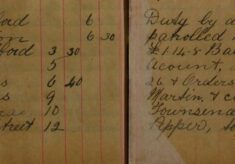 ford 6
on 6 30
ford 3 30
5
s 6 40
s 9
10
street 12
Duty by a
panolled
£114-5 Ba
Acount,
26 + Orders
Martin, & c
Townsend
Pepper, So